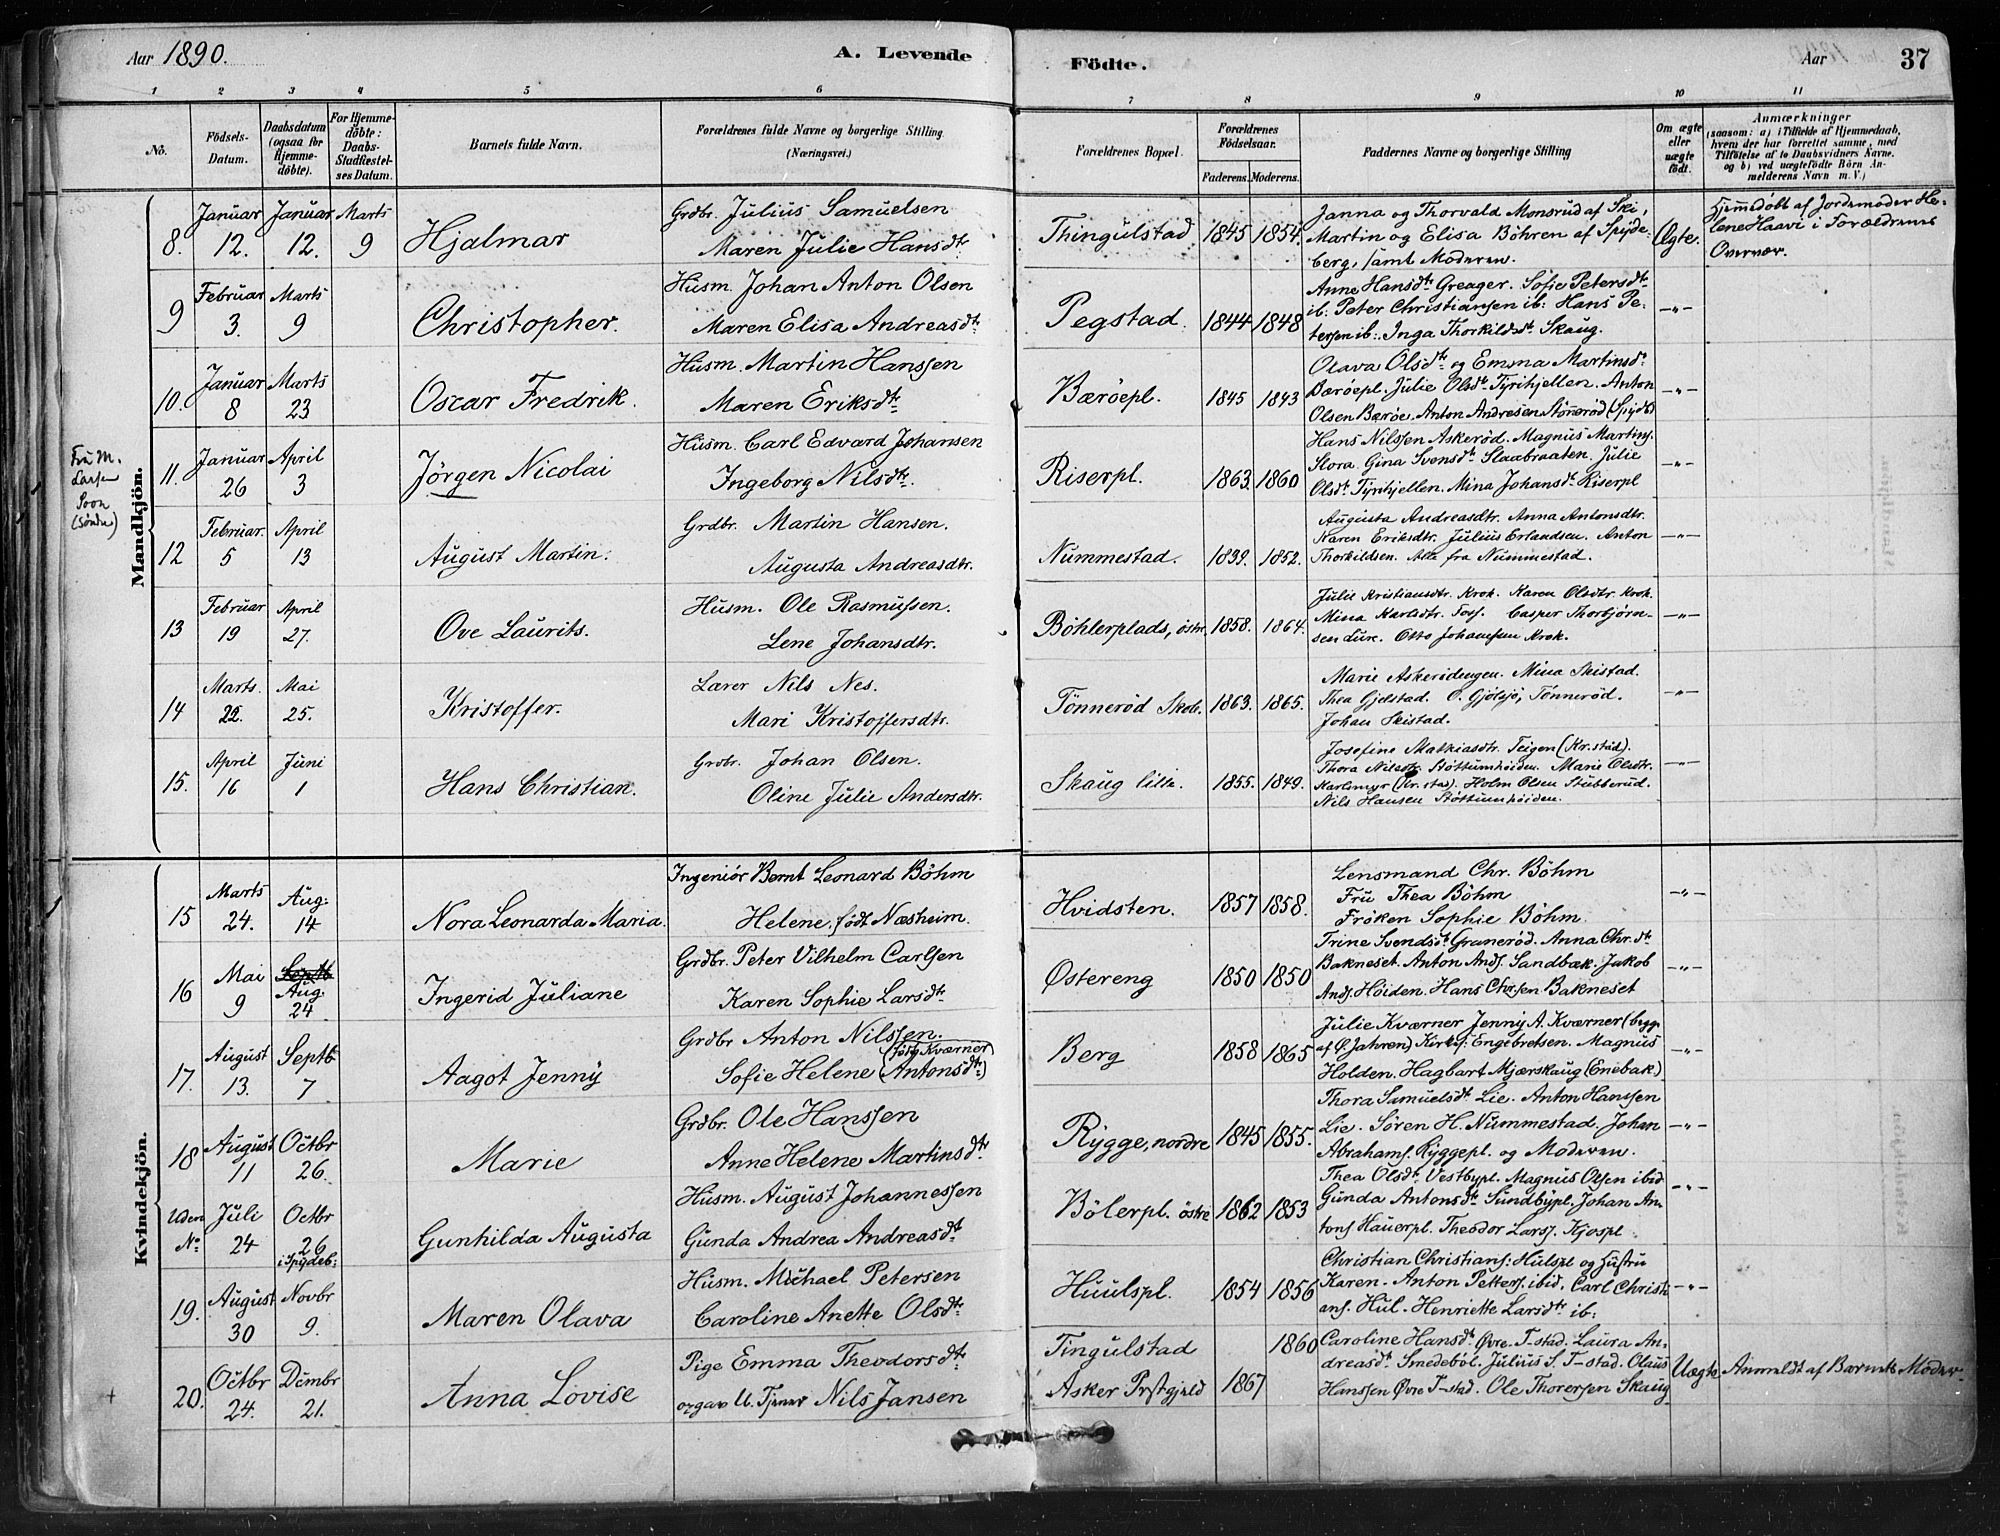 Aar 1890.
A. Levende
Födte.
Aar
37
1 2 3 4 5 6 7 8 9 10 11
No.
Födsels-
Datum.
Daabsdatum
(ogsaa for
Hjemme-
döbte).
For Hjemme-
döbte:
Daabs-
Stadfæstel-
ses Datum.
Barnets fulde Navn.
Forældrenes fulde Navne og borgerlige Stilling.
(Næringsvei.)
Forældrenes Bopæl.
Forældrenes
Födselsaar.
Faderens. Moderens.
Faddernes Navne og borgerlige Stilling
Om ægte
eller
uægte
födt.
Anmærkninger
(saasom: a) i Tilfælde af Hjemmedaab,
hvem der har forrettet samme, med
Tilföielse af to Daabsvidners Navne.
og b) ved uægtefödte Börn An-
melderens Navn m. V.)
Mandkjön.
8. Januar 12. Januar 12. Marts 9
Hjalmar
Grdbr. Julius Samuelsen
Maren Julie Hansdtr
Thingulstad 1845 1854.
Janna og Thorvald Monsrud af Ski,
Martin og Elisa Böhren af Spyde-
berg, samt Moderen.
Ægte.
Hjemmedöbt af Jordemoder He-
lene Haavi i Forældrenes
Overvær.
9 Februar 3. Marts 9
Christopher.
Husm. Johan Anton Olsen
Maren Elisa Andreasdtr
Pegstad. 1844 1848
Anne Hansdtr Greager. Sofie Petersdtr
ib: Peter Christiansen ib: Hans Pe-
tersen ib: Inga Thorkildsdtr Skaug.
-"-
10. Januar 8 Marts 23
Oscar Fredrik.
Husm. Martin Hanssen
Maren Eriksdtr
Bærøepl. 1845 1843
Olava Olsdtr og Emma Martinsdtr
Bærøepl. Julie Olsdtr Tyrihjellen. Anton
Olsen Bærøe. Anton Andresen Stönnerød (Spydb)
-"-
Fru M.
Larsen
Soon
(Söndre)
11. Januar 26 April 3
Jörgen Nicolai
Husm. Carl Edvard Johansen
Ingeborg Nilsdtr.
Riserpl. 1863. 1860
Hans Nilssen Askerød. Magnus Martins.
Slora. Gina Svensdtr Slaabraaten. Julie
Olsdtr Tyrihjellen. Mina Johansdtr Riserpl
-"-
12 Februar. 5 April 13
August Martin.
Grdbr. Martin Hansen.
Augusta Andreasdtr.
Nummestad. 1839. 1852.
Augusta Andreasdtr. Anna Antonsdtr.
Karen Eriksdtr. Julius Erlandsen. Anton
Thorkildsen. Alle fra Nummestad.
-"-
13 Februar 19 April 27.
Ove Laurits.
Husm. Ole Rasmussen.
Lene Johansdtr.
Böhlerplads, östre, 1858. 1864.
Julie Kristiansdtr. Krok. Karen Olsdtr. Krok.
Mina Karlsdtr. Foss. Casper Thorbjörn-
sen Lure. Otto Johannsen Krok.
-"-
14 Marts. 22. Mai 25.
Kristoffer.
Lærer Nils Nes.
Mari Kristoffersdtr.
Tönnerød Skole. 1863. 1865.
Marie Askeridengen. Mina Skistad.
Thea Gjelstad. O. Gjölsjö, Tönnerød.
Johan Skistad.
-"-
15. April 16 Juni 1
Hans Christian.
Grdbr. Johan Olsen.
Oline Julie Andersdtr.
Skaug lille. 1855. 1849.
Josefine Mathiasdtr. Teigen (Kr.stad).
Thora Nilsdtr. Støttumhöiden. Marie Olsdtr.
Karlsmyr (Kr.stad). Holm Olsen Stubberud.
Nils Hansen Støttumhöiden.
-"-
Kvindekjön.
15 Marts 24. Aug. 14
Nora Leonarda Maria.
Ingeniör Bernt Leonard Böhm
Helene, födt Næsheim.
Hvidsten. 1857 1858.
Lensmand Chr. Böhm
Fru Thea Böhm
Fröken Sophie Böhm.
-"-
16 Mai 9 Septb Aug. 24
Ingerid Juliane
Grdbr. Peter Vilhelm Carlsen
Karen Sophie Larsdtr
Østereng 1850 1850
Trine Svendsdtr Granerød. Anna Chr.dtr
Bakneset. Anton Ands. Sandbæk. Jakob
Ands. Höiden. Hans Chrsen Bakneset
-"-
17. August 13. Septb 7
Aagot Jenny
Grdbr Anton Nilssen.
Sofie Helene (Antonsdtr)
Berg 1858 1865
Julie Kværner Jenny A. Kværner (begge
af Ø. Jahren) Engebretsen. Magnus
Holden. Hagbart Mjærskaug (Enebak.)
-"-
18 August 11 Octbr 26.
Marie
Grdbr. Ole Hanssen
Anne Helene Martinsdtr
Rygge, nordre 1845 1855.
Thora Samuelsdtr Lie. Anton Hanssen
Lie. Søren H. Nummestad. Johan
Abrahams. Ryggepl. og Moderen.
-"-
Uden No Juli 24 Octbr 26 i Spydeb:
Gunhilda Augusta
Husm. August Johannessen
Gunda Andrea Andreasdtr
Bölerpl. östre 1862 1853
Thea Olsdtr Vestbypl. Magnus Olsen ibid
Gunda Antonsdtr Sundbypl. Johan An-
tons. Hauerpl. Theodor Larss. Kjospl
-"-
19. August 30 Novbr 9.
Maren Olava
Husm. Michael Petersen
Caroline Anette Olsdtr
Huulspl. 1854 1856
Christian Christians: Hulspl og Hustru
Karen. Anton Petters. ibid. Carl Christi-
ans. Hul. Henriette Larsdtr ib:
-"-
+ 20. Octbr 24. Dcmbr 21.
Anna Lovise
Pige Emma Theodorsdtr
U. Tjener Nils Jansen
Tingulstad 1860
Asker Prstgjeld 1867
Caroline Hansdtr Øvre T-stad. Laura An-
dreasdtr Smedeböl. Julius S. T-stad. Olaus
Hanssen Øvre T-stad. Ole Thorersen Skaug
Uægte
Anmeldt af Barnets Moder.